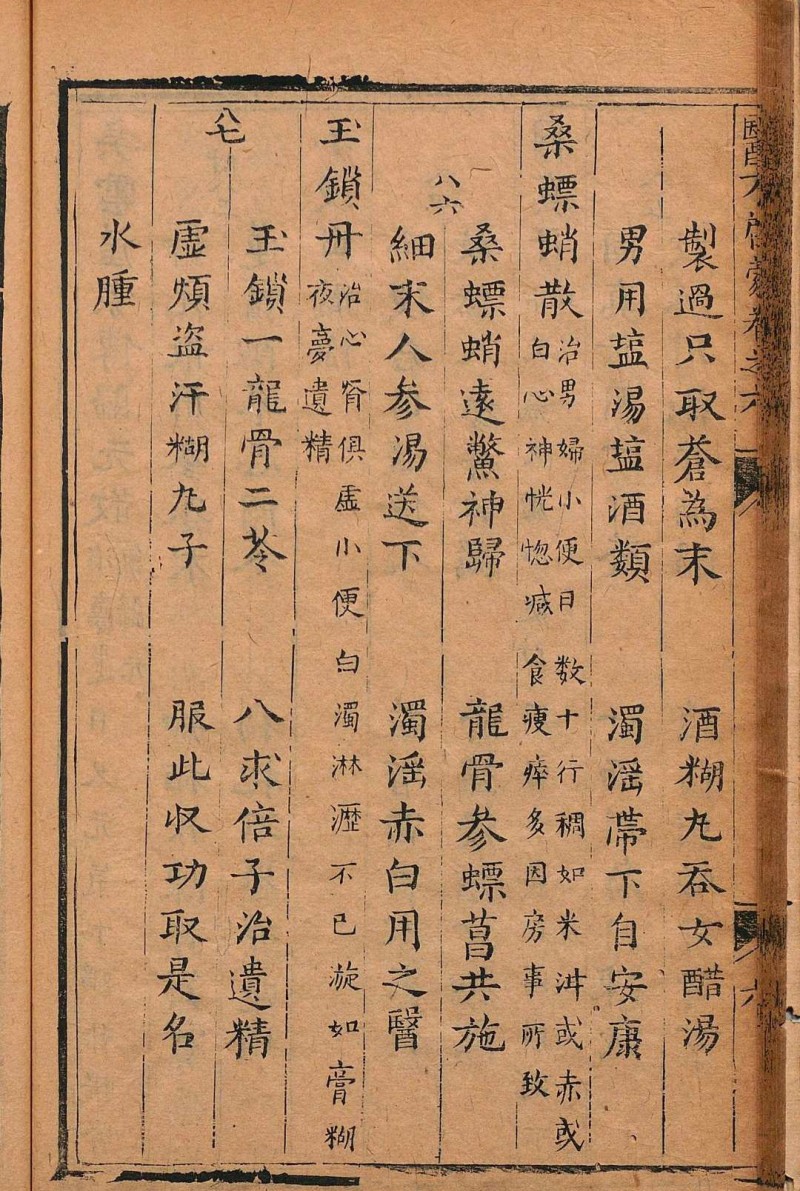 醫方啓蒙卷之六
六
製過只取蒼為末 酒糊丸吞女醋湯
男用塩湯塩酒類 濁滛帶下自安康
桑螵蛸散 治男婦小便日数十行稠如米泔或赤或
白心神恍惚减食瘦瘁多因房事所致
桑螵蛸遠鱉神歸 龍骨参螵菖共施
八六
細末人参湯送下 濁滛赤白用之醫
玉鎖丹 治心肾俱虚小便白濁淋瀝不已漩如膏糊
夜夢遺精
玉鎖一龍骨二苓 八求倍子治遺精
八七
虛煩盗汗糊丸子 服此收功取是名
水腫